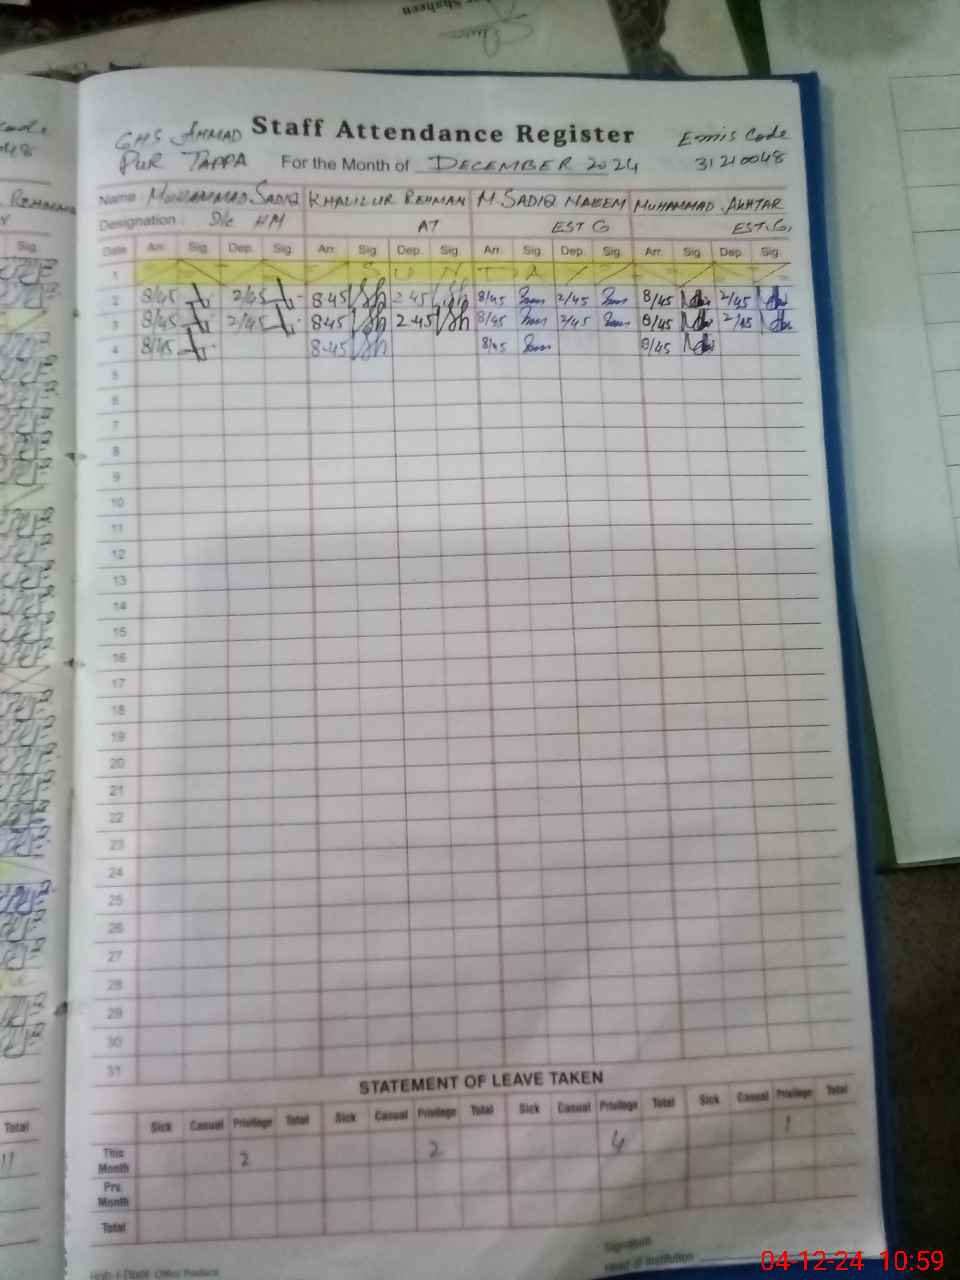 Shaheen
GHS AHMAD Staff Attendance Register Emis Code
PUR TAPPA For the Month of DECEMBER 2024 31210048
Name : MUHAMMAD SADIQ KHALIL UR REHMAN M. SADIQ NAEEM MUHAMMAD AKHTAR
Designation : I/c HM AT EST G EST. G,
Date Arr. Sig. Dep. Sig. Arr. Sig. Dep. Sig. Arr. Sig. Dep. Sig. Arr. Sig. Dep. Sig.
1 S U N D A Y
2 8/45 2/45 8-45 2-45 8/45 2/45 8/45 2/45
3 8/45 2/45 8-45 2-45 8/45 2/45 8/45 2/45
4 8/45 8-45 8/45 8/45
5
6
7
8
9
10
11
12
13
14
15
16
17
18
19
20
21
22
23
24
25
26
27
28
29
30
31
STATEMENT OF LEAVE TAKEN
Sick Casual Privilege Total Sick Casual Privilege Total Sick Casual Privilege Total Sick Casual Privilege Total
This Month 2 2 4 1
Prv. Month
Total
Signature
Head of Institution
Sig.
Total
11
04-12-24 10:59